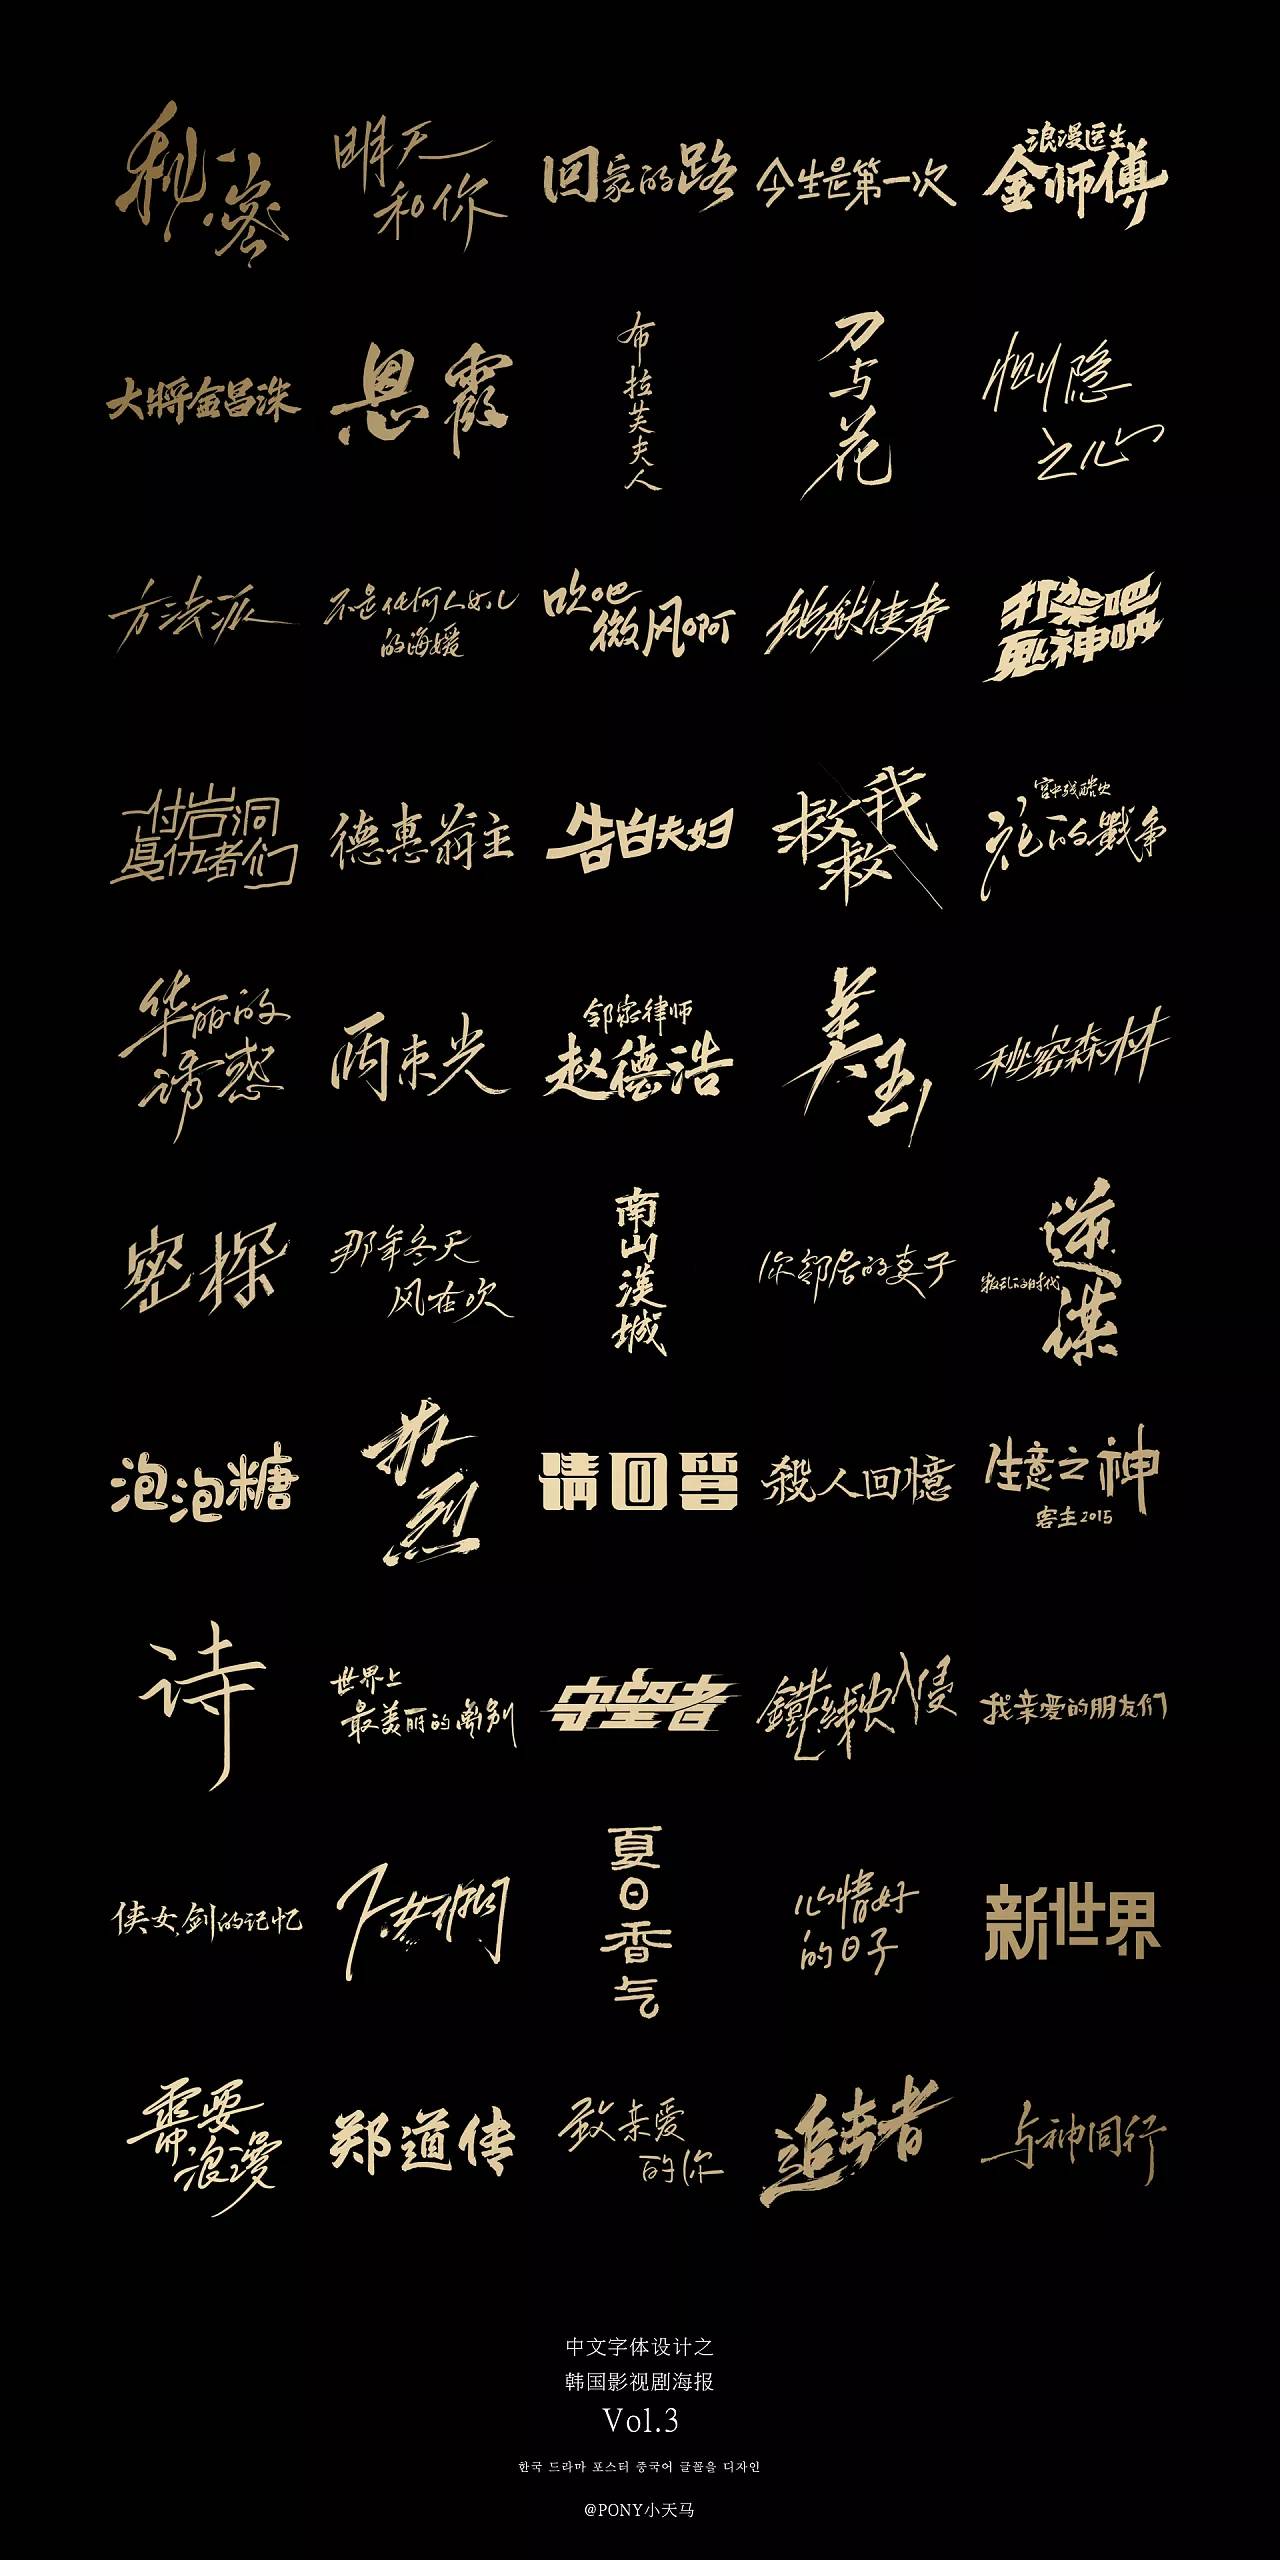 秘密
明天
和你
回家的路
今生是第一次
浪漫医生
金师傅
大將金昌洙
恩霞
布拉芙夫人
刀与花
恻隐
之心
方法派
不是任何人女儿
的海媛
吹吧
微风啊
地狱使者
打架吧
鬼神呐
付岩洞
復仇者们
德惠翁主
告白夫妇
救救我
宫中残酷史
花的戰争
华丽的
诱惑
两束光
邻家律师
赵德浩
美人王
秘密森林
密探
那年冬天
风在吹
南山漢城
你邻居的妻子
逆谋
叛乱的时代
泡泡糖
朴烈
请回答
殺人回憶
生意之神
客主2015
诗
世界上
最美丽的离别
守望者
鐵线虫入侵
我亲爱的朋友们
侠女,剑的记忆
下女们
夏日香气
心情好
的日子
新世界
需要
浪漫
郑道传
致亲爱
的你
追击者
与神同行
中文字体设计之
韩国影视剧海报
Vol.3
한국 드라마 포스터 중국어 글꼴을 디자인
@PONY小天马